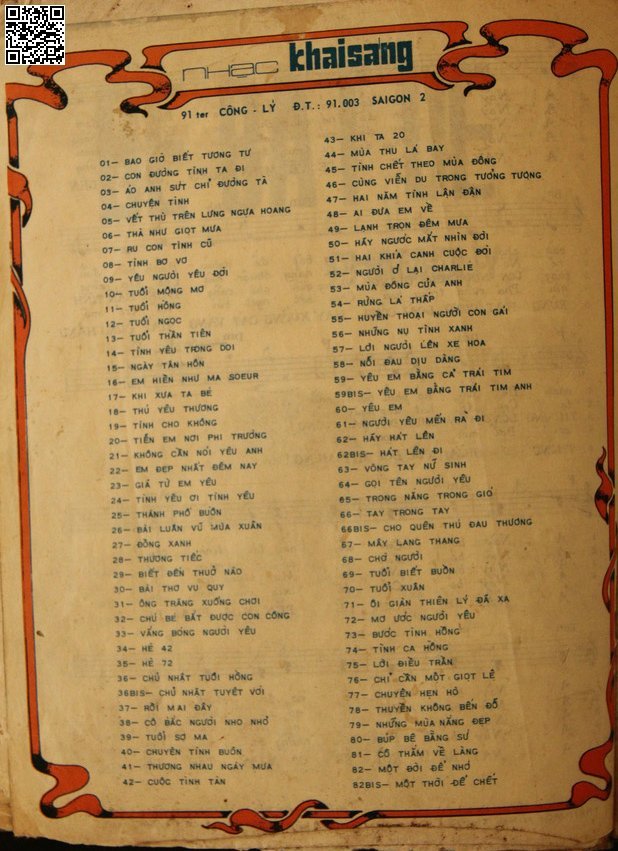 nhạc khaisáng
91 ter CÔNG - LÝ Đ.T.: 91.003 SAIGON 2
01— BAO GIỜ BIẾT TƯƠNG TƯ
02— CON ĐƯỜNG TÌNH TA ĐI
03— ÁO ANH SỨT CHỈ ĐƯỜNG TÀ
04— CHUYỆN TÌNH
05— VẾT THÙ TRÊN LƯNG NGỰA HOANG
06— THÀ NHƯ GIỌT MƯA
07— RU CON TÌNH CŨ
08— TÌNH BƠ VƠ
09— YÊU NGƯỜI YÊU ĐỜI
10— TUỔI MỘNG MƠ
11— TUỔI HỒNG
12— TUỔI NGỌC
13— TUỔI THẦN TIÊN
14— TÌNH YÊU TRONG ĐỜI
15— NGÀY TÂN HÔN
16— EM HIỀN NHƯ MA SOEUR
17— KHI XƯA TA BÉ
18— THÚ YÊU THƯƠNG
19— TÌNH CHO KHÔNG
20— TIỄN EM NƠI PHI TRƯỜNG
21— KHÔNG CẦN NÓI YÊU ANH
22— EM ĐẸP NHẤT ĐÊM NAY
23— GIÃ TỪ EM YÊU
24— TÌNH YÊU ƠI TÌNH YÊU
25— THÀNH PHỐ BUỒN
26— BÀI LUÂN VŨ MÙA XUÂN
27— ĐỒNG XANH
28— THƯƠNG TIẾC
29— BIẾT ĐẾN THUỞ NÀO
30— BÀI THƠ VU QUY
31— ÔNG TRĂNG XUỐNG CHƠI
32— CHÚ BÉ BẮT ĐƯỢC CON CÔNG
33— VẮNG BÓNG NGƯỜI YÊU
34— HÈ 42
35— HÈ 72
36— CHỦ NHẬT TUỔI HỒNG
36BIS— CHỦ NHẬT TUYỆT VỜI
37— RỒI MAI ĐÂY
38— CÔ BẮC NGƯỜI NHO NHỎ
39— TUỔI SƠ MA
40— CHUYỆN TÌNH BUỒN
41— THƯƠNG NHAU NGÀY MƯA
42— CUỘC TÌNH TÀN
43— KHI TA 20
44— MÙA THU LÁ BAY
45— TÌNH CHẾT THEO MÙA ĐÔNG
46— CÙNG VIỄN DU TRONG TƯỞNG TƯỢNG
47— HAI NĂM TÌNH LẬN ĐẬN
48— AI ĐƯA EM VỀ
49— LẠNH TRỌN ĐÊM MƯA
50— HÃY NGƯỚC MẮT NHÌN ĐỜI
51— HAI KHÍA CẠNH CUỘC ĐỜI
52— NGƯỜI Ở LẠI CHARLIE
53— MÙA ĐÔNG CỦA ANH
54— RỪNG LÁ THẤP
55— HUYỀN THOẠI NGƯỜI CON GÁI
56— NHỮNG NỤ TÌNH XANH
57— LỜI NGƯỜI LÊN XE HOA
58— NỖI ĐAU DỊU DÀNG
59— YÊU EM BẰNG CẢ TRÁI TIM
59BIS— YÊU EM BẰNG TRÁI TIM ANH
60— YÊU EM
61— NGƯỜI YÊU MẾN RA ĐI
62— HÃY HÁT LÊN
62BIS— HÁT LÊN ĐI
63— VÒNG TAY NỮ SINH
64— GỌI TÊN NGƯỜI YÊU
65— TRONG NẮNG TRONG GIÓ
66— TAY TRONG TAY
66BIS— CHO QUÊN THÚ ĐAU THƯƠNG
67— MÂY LANG THANG
68— CHỜ NGƯỜI
69— TUỔI BIẾT BUỒN
70— TUỔI XUÂN
71— ÔI GIÀN THIÊN LÝ ĐÃ XA
72— MƠ ƯỚC NGƯỜI YÊU
73— BƯỚC TÌNH HỒNG
74— TÌNH CA HỒNG
75— LỜI ĐIỀU TRẦN
76— CHỈ CẦN MỘT GIỌT LỆ
77— CHUYỆN HẸN HÒ
78— THUYỀN KHÔNG BẾN ĐỖ
79— NHỮNG MÙA NẮNG ĐẸP
80— BÚP BÊ BẰNG SỨ
81— CỎ THẮM VỀ LÀNG
82— MỘT ĐỜI ĐỂ NHỚ
82BIS— MỘT THỜI ĐỂ CHẾT